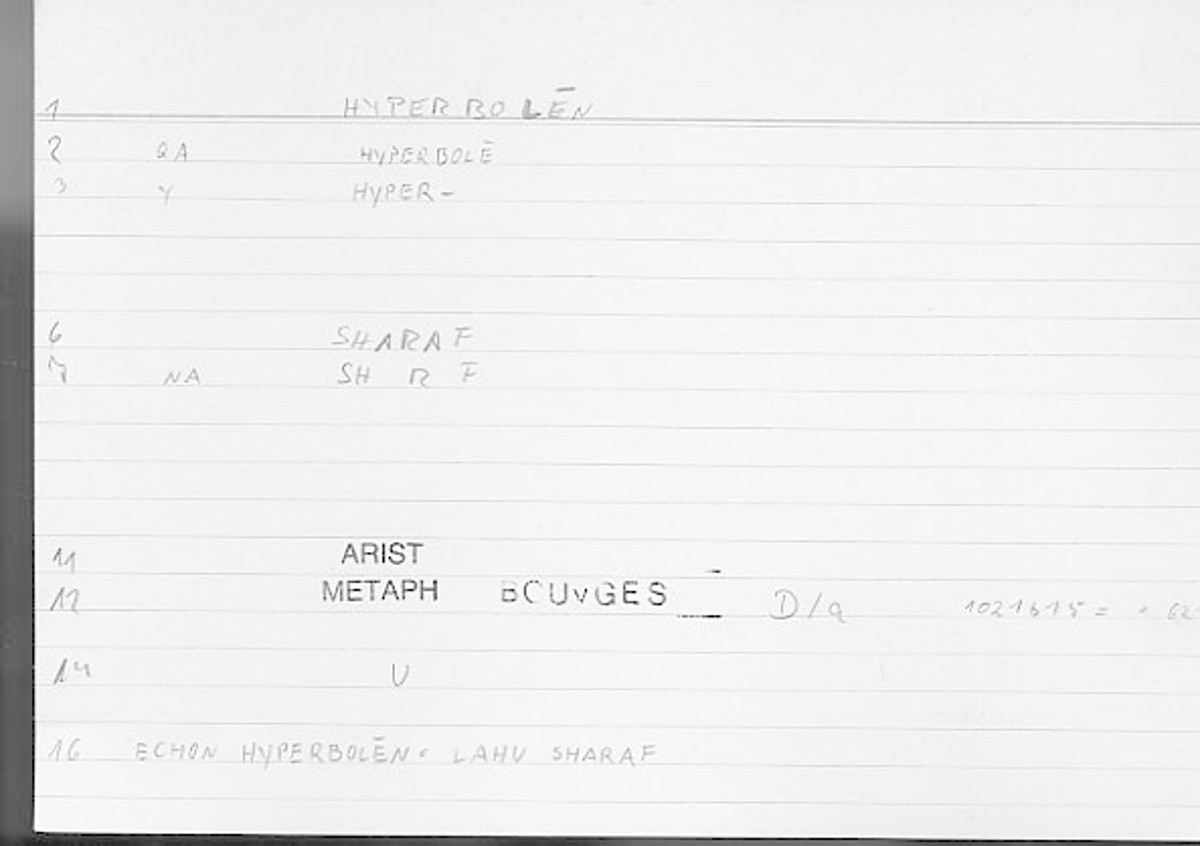 1 HYPERBOLĒN
2 QA HYPERBOLĒ
3 Y HYPER-
6 SHARAF
7 NA SH R F
11 ARIST
12 METAPH BOUYGES D/a 1021b15 = 62
14 U
16 ECHON HYPERBOLĒN = LAHU SHARAF